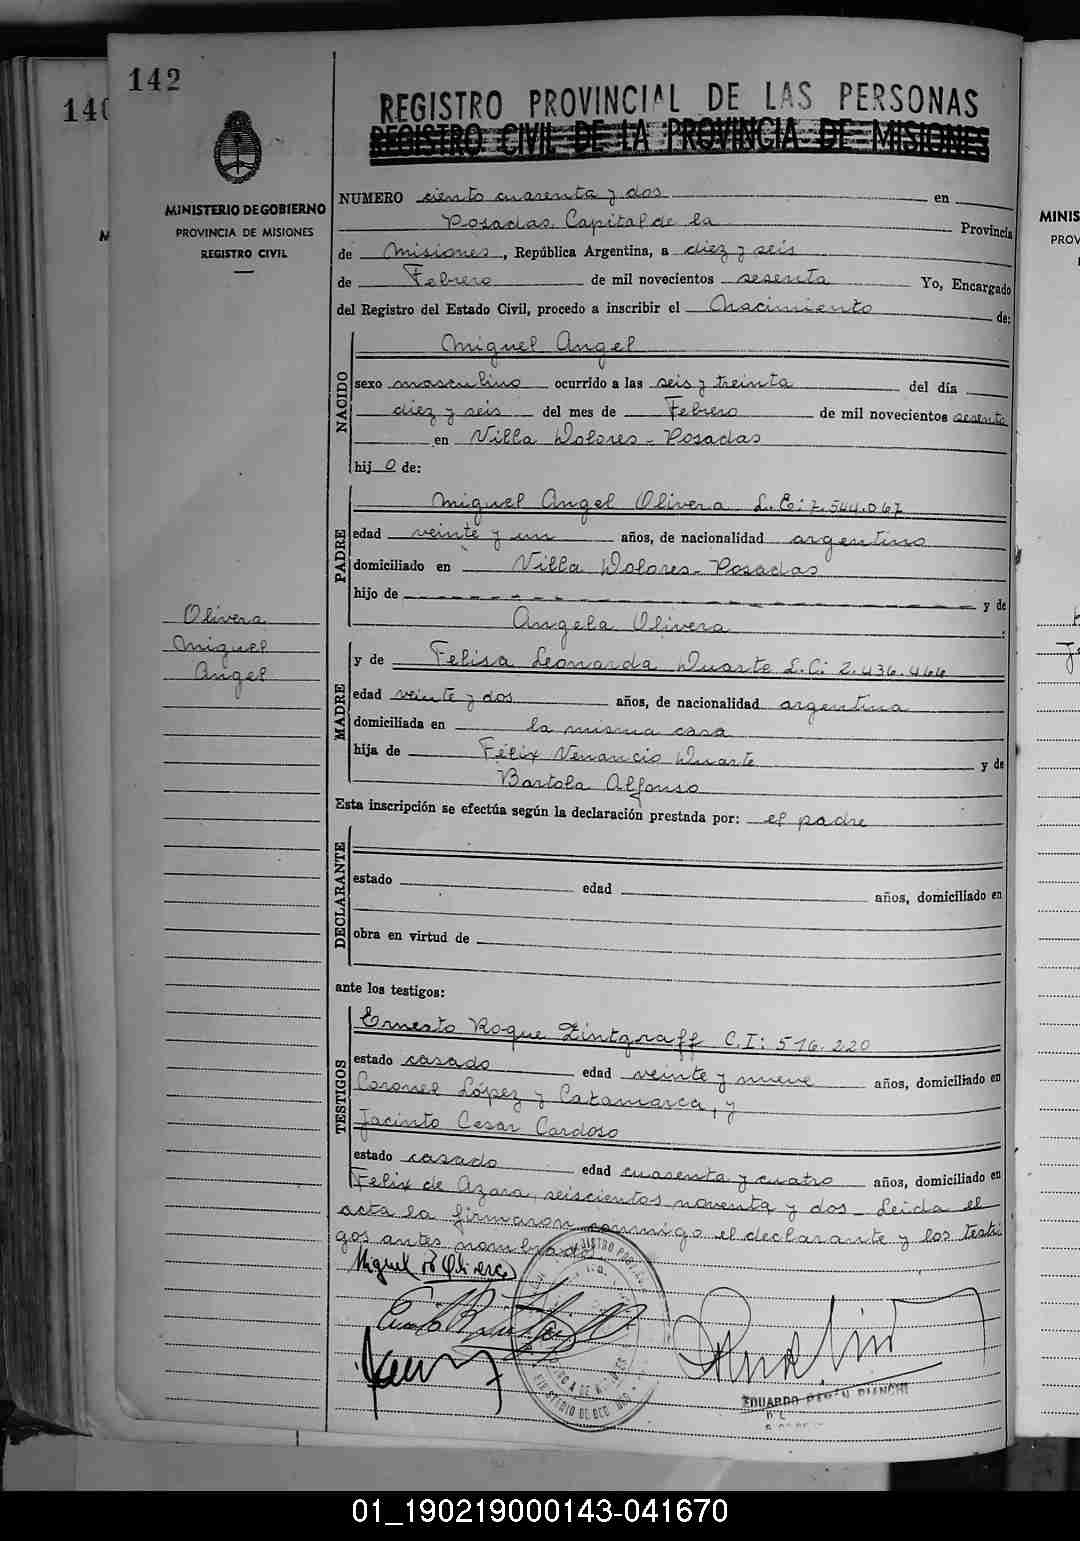 142
140
MINISTERIO DE GOBIERNO
PROVINCIA DE MISIONES
REGISTRO CIVIL
REGISTRO PROVINCIAL DE LAS PERSONAS
REGISTRO CIVIL DE LA PROVINCIA DE MISIONES
NUMERO ciento cuarenta y dos en
Posadas Capital de la Provincia
de Misiones, República Argentina, a diez y seis
de Febrero de mil novecientos sesenta Yo, Encargado
del Registro del Estado Civil, procedo a inscribir el Nacimiento de:
NACIDO
Miguel Angel
sexo masculino ocurrido a las seis y treinta del día
diez y seis del mes de Febrero de mil novecientos sesenta
en Villa Dolores - Posadas
hijo de:
PADRE
Miguel Angel Olivera L.E: 7.544.067
edad veinte y un años, de nacionalidad argentino
domiciliado en Villa Dolores - Posadas
hijo de y de
Angela Olivera
Olivera
Miguel
Angel
MADRE
y de Felisa Leonarda Duarte L.C: 2.436.466
edad veinte y dos años, de nacionalidad argentina
domiciliada en la misma casa
hija de Félix Venancio Duarte y de
Bartola Alfonso
Esta inscripción se efectúa según la declaración prestada por: el padre
DECLARANTE
estado edad años, domiciliado en
obra en virtud de
ante los testigos:
TESTIGOS
Ernesto Roque Zintgraff C.I: 516.220
estado casado edad veinte y nueve años, domiciliado en
Coronel López y Catamarca, y
Jacinto Cesar Cardoso
estado casado edad cuarenta y cuatro años, domiciliado en
Felix de Azara, seiscientos noventa y dos - Leida el
acta la firmaron conmigo el declarante y los testi
gos antes nombrados
Miguel A Olivera
EDUARDO BIANCHI
MINIS
PROV
01_190219000143-041670